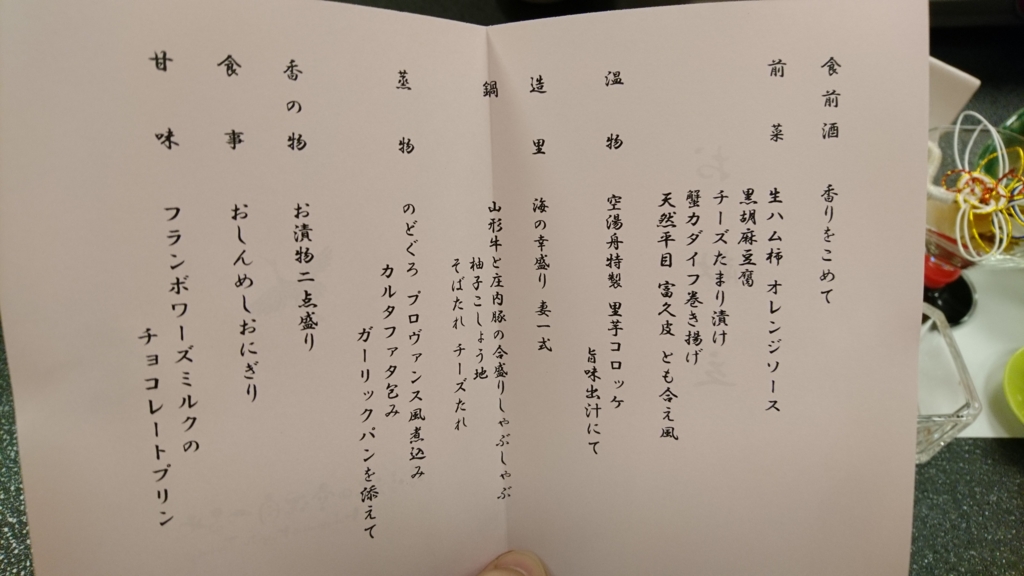 食前酒 香りをこめて
前菜 生ハム柿 オレンジソース
黒胡麻豆腐
チーズたまり漬け
蟹カダイフ巻き揚げ
天然平目 富久皮 とも合え風
温物 空湯舟特製 里芋コロッケ
旨味出汁にて
造里 海の幸盛り 妻一式
鍋 山形牛と庄内豚の合盛りしゃぶしゃぶ
柚子こしょう地
そばたれ チーズたれ
蒸物 のどぐろ プロヴァンス風煮込み
カルタファタ包み
ガーリックパンを添えて
香の物 お漬物二点盛り
食事 おしんめしおにぎり
甘味 フランボワーズミルクの
チョコレートプリン